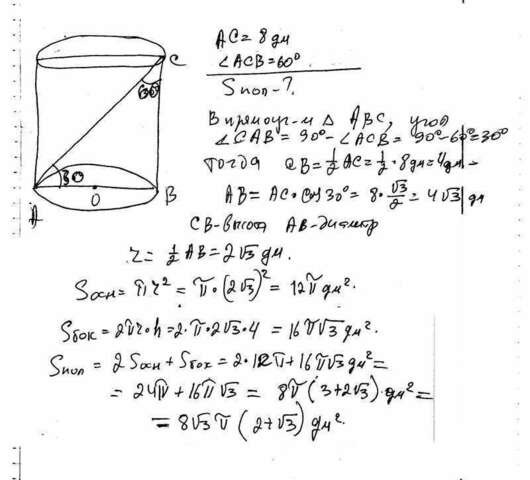 AC = 8 дм
∠ACB = 60°
Sпол - ?
C
60°
30
A
O
B
В прямоуг-м △ ABC, угол
∠CAB = 90° - ∠ACB = 90° - 60° = 30°
тогда CB = 1/2 AC = 1/2 · 8 дм = 4 дм -
AB = AC · cos 30° = 8 · √3/2 = 4√3 дм
CB - высота AB - диаметр
r = 1/2 AB = 2√3 дм.
Sосн = πr² = π · (2√3)² = 12π дм².
Sбок = 2πr·h = 2·π·2√3·4 = 16π√3 дм².
Sпол = 2Sосн + Sбок = 2·12π + 16π√3 дм² =
= 24π + 16π√3 = 8π(3+2√3) дм² =
= 8√3π(2+√3) дм².